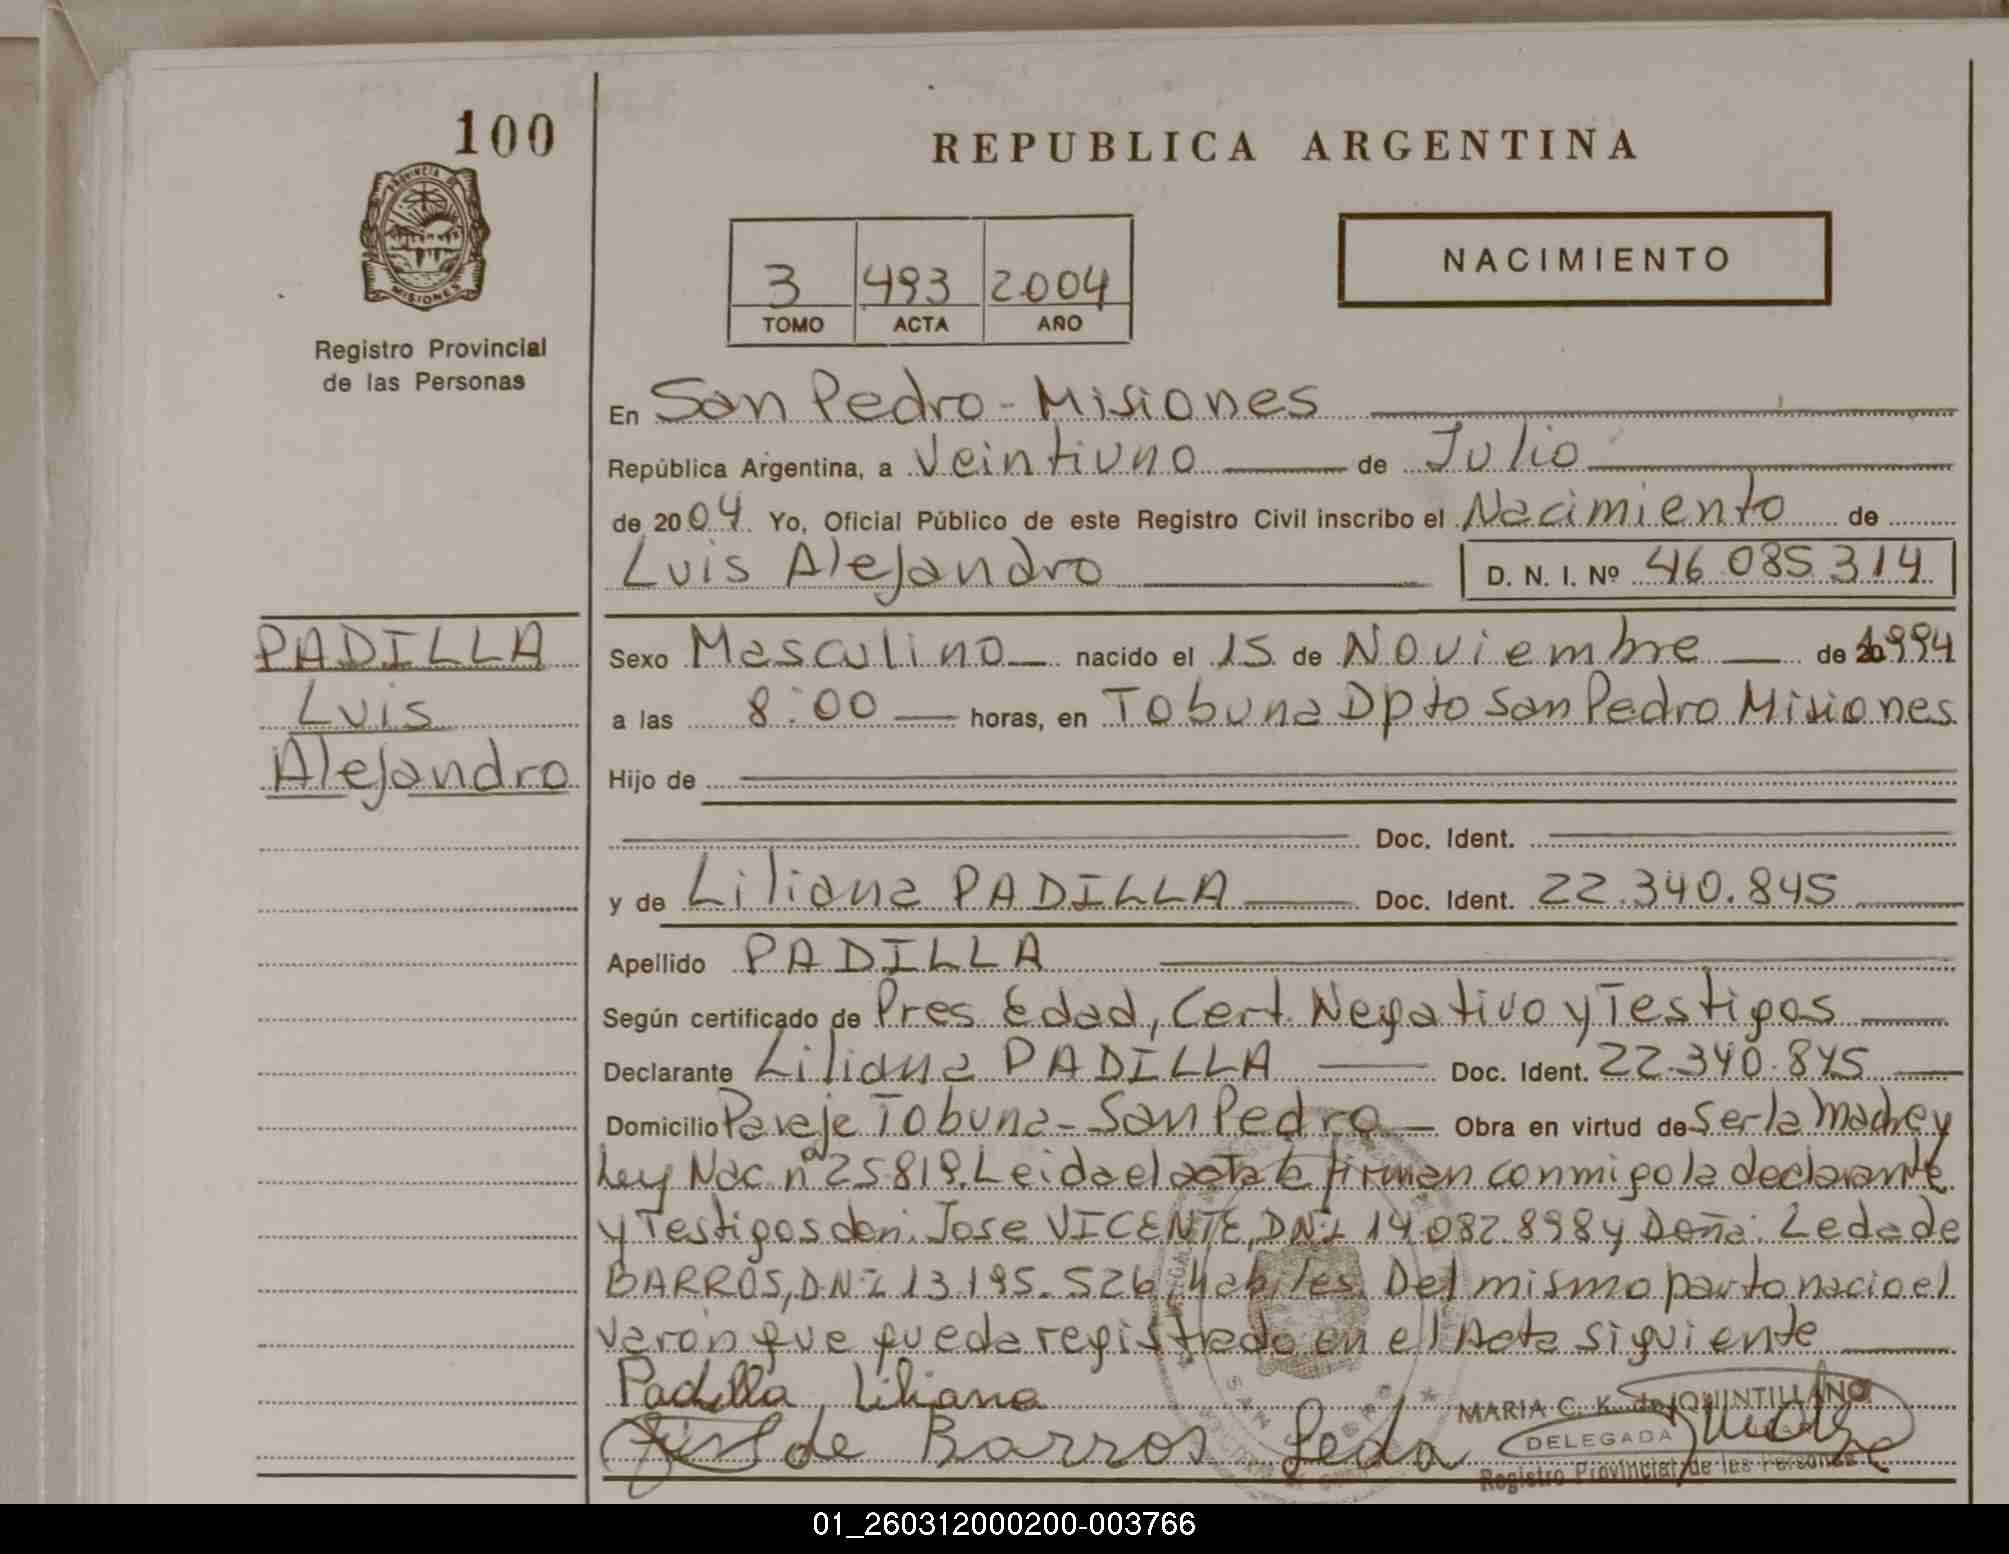 100
REPUBLICA ARGENTINA
PROVINCIA DE
MISIONES
NACIMIENTO
3 493 2004
TOMO ACTA AÑO
Registro Provincial
de las Personas
En San Pedro - Misiones
República Argentina, a Veintiuno de Julio
de 2004 Yo, Oficial Público de este Registro Civil inscribo el Nacimiento de
Luis Alejandro D. N. I. Nº 46.085.314
PADILLA
Luis
Alejandro
Sexo Masculino nacido el 15 de Noviembre de 1994
a las 8:00 horas, en Tobuna Dpto San Pedro Misiones
Hijo de
Doc. Ident.
y de Liliana PADILLA Doc. Ident. 22.340.845
Apellido PADILLA
Según certificado de Pres Edad, Cert. Negativo y Testigos
Declarante Liliana PADILLA Doc. Ident. 22.340.845
Domicilio Paraje Tobuna - San Pedro Obra en virtud de Ser la Madre y
Ley Nac. nº 25819. Leida el acta la firman conmigo la declarante
y Testigos don: Jose VICENTE, DNI 14.082.898 y Doña: Leda de
BARROS, DNI 13.195.526, Habiles. Del mismo parto nacio el
varon que queda registrado en el Acta siguiente
Padilla Liliana
de Barros Leda
MARIA C. K. de QUINTILLANO
DELEGADA
Registro Provincial de las Personas
01_260312000200-003766